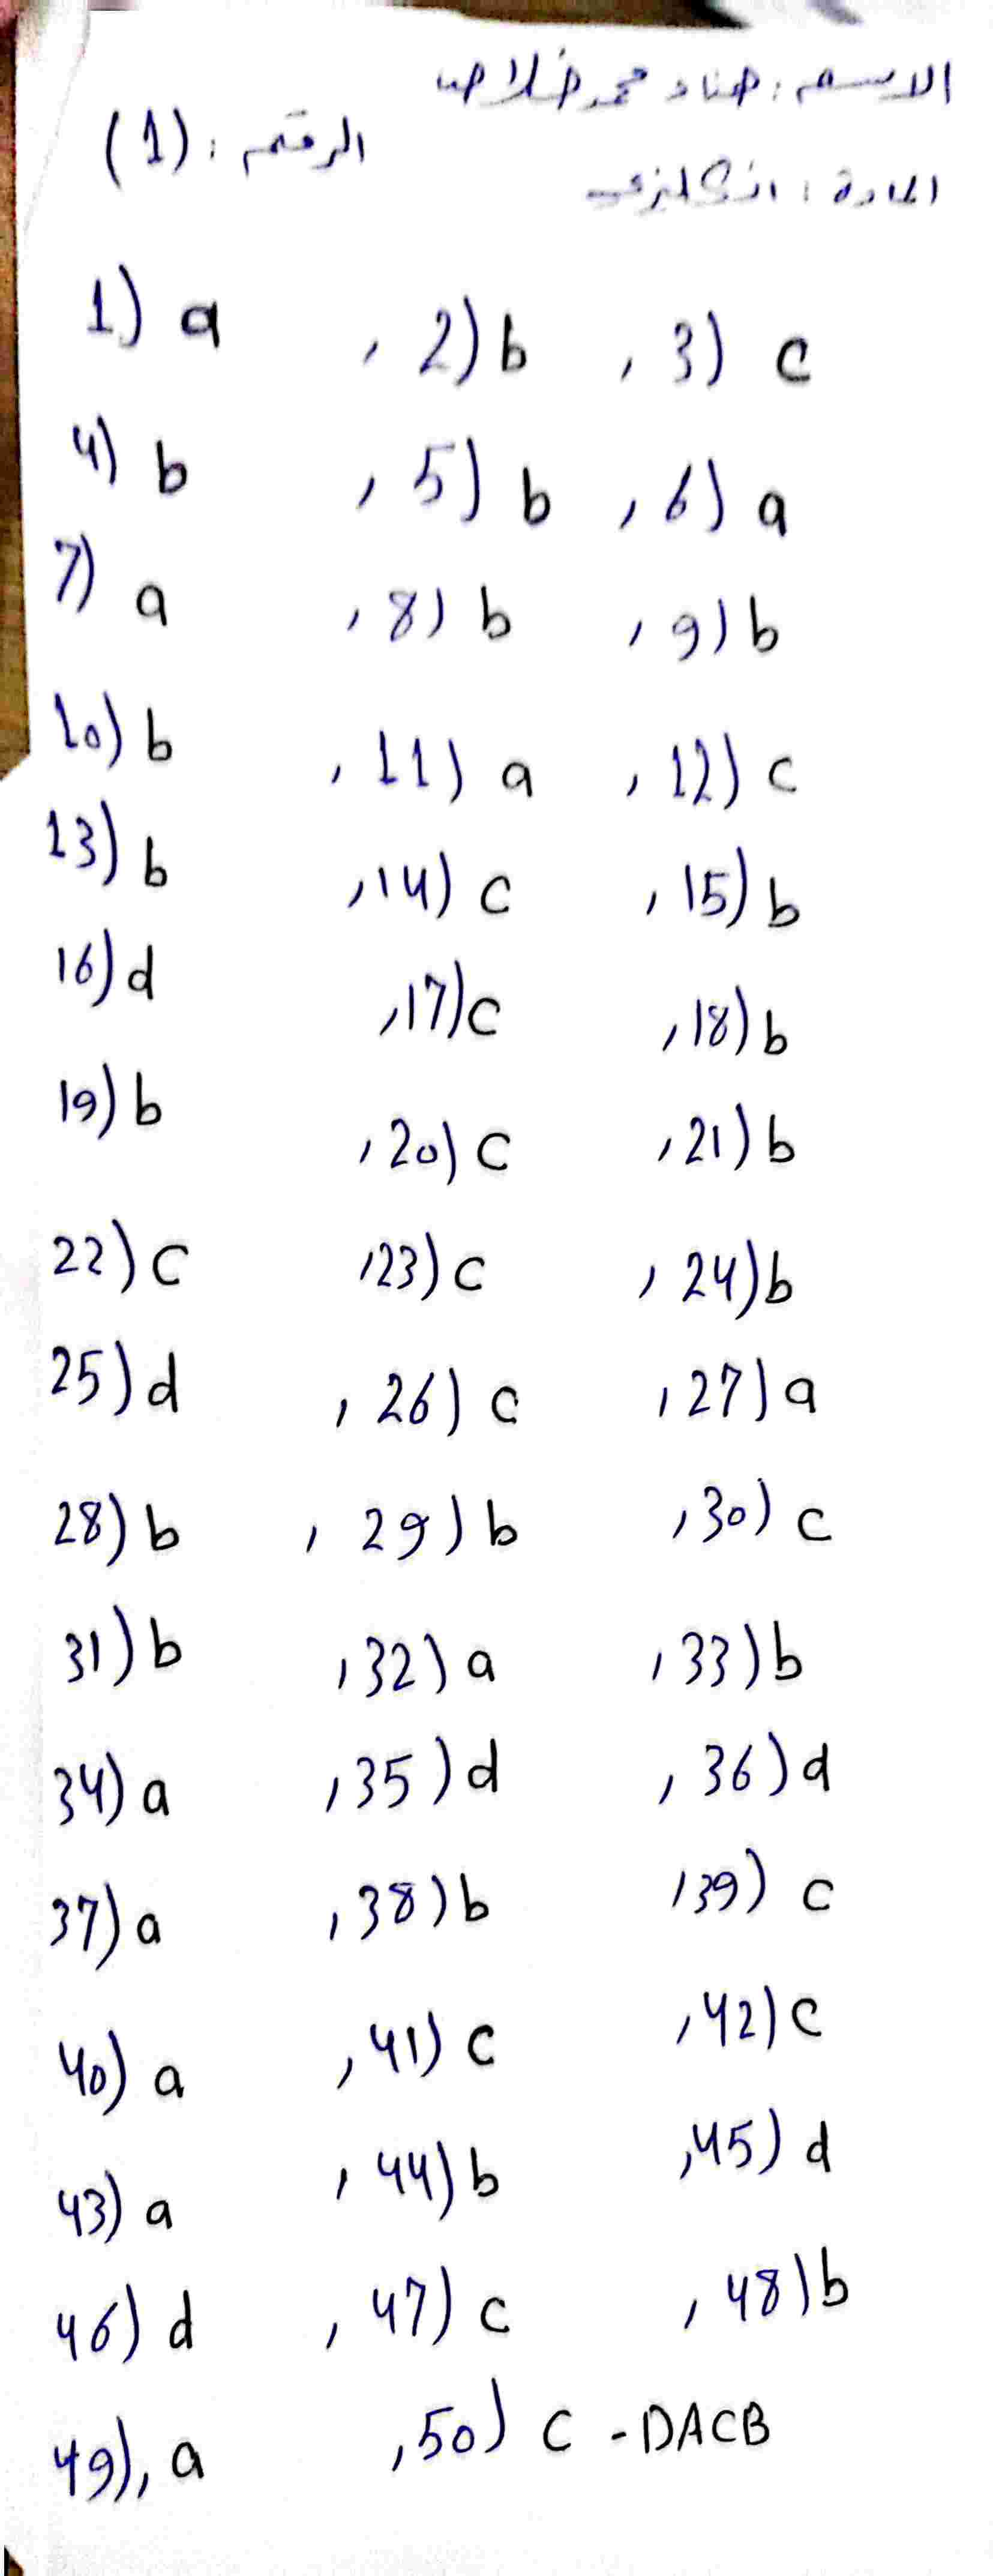 الاسم : هناد محمد خلاصه
الرقم : (1)
المادة : انكليزي
1) a , 2) b , 3) c
4) b , 5) b , 6) a
7) a , 8) b , 9) b
10) b , 11) a , 12) c
13) b , 14) c , 15) b
16) d , 17) c , 18) b
19) b , 20) c , 21) b
22) c , 23) c , 24) b
25) d , 26) c , 27) a
28) b , 29) b , 30) c
31) b , 32) a , 33) b
34) a , 35) d , 36) d
37) a , 38) b , 39) c
40) a , 41) c , 42) c
43) a , 44) b , 45) d
46) d , 47) c , 48) b
49) , a , 50) c - DACB